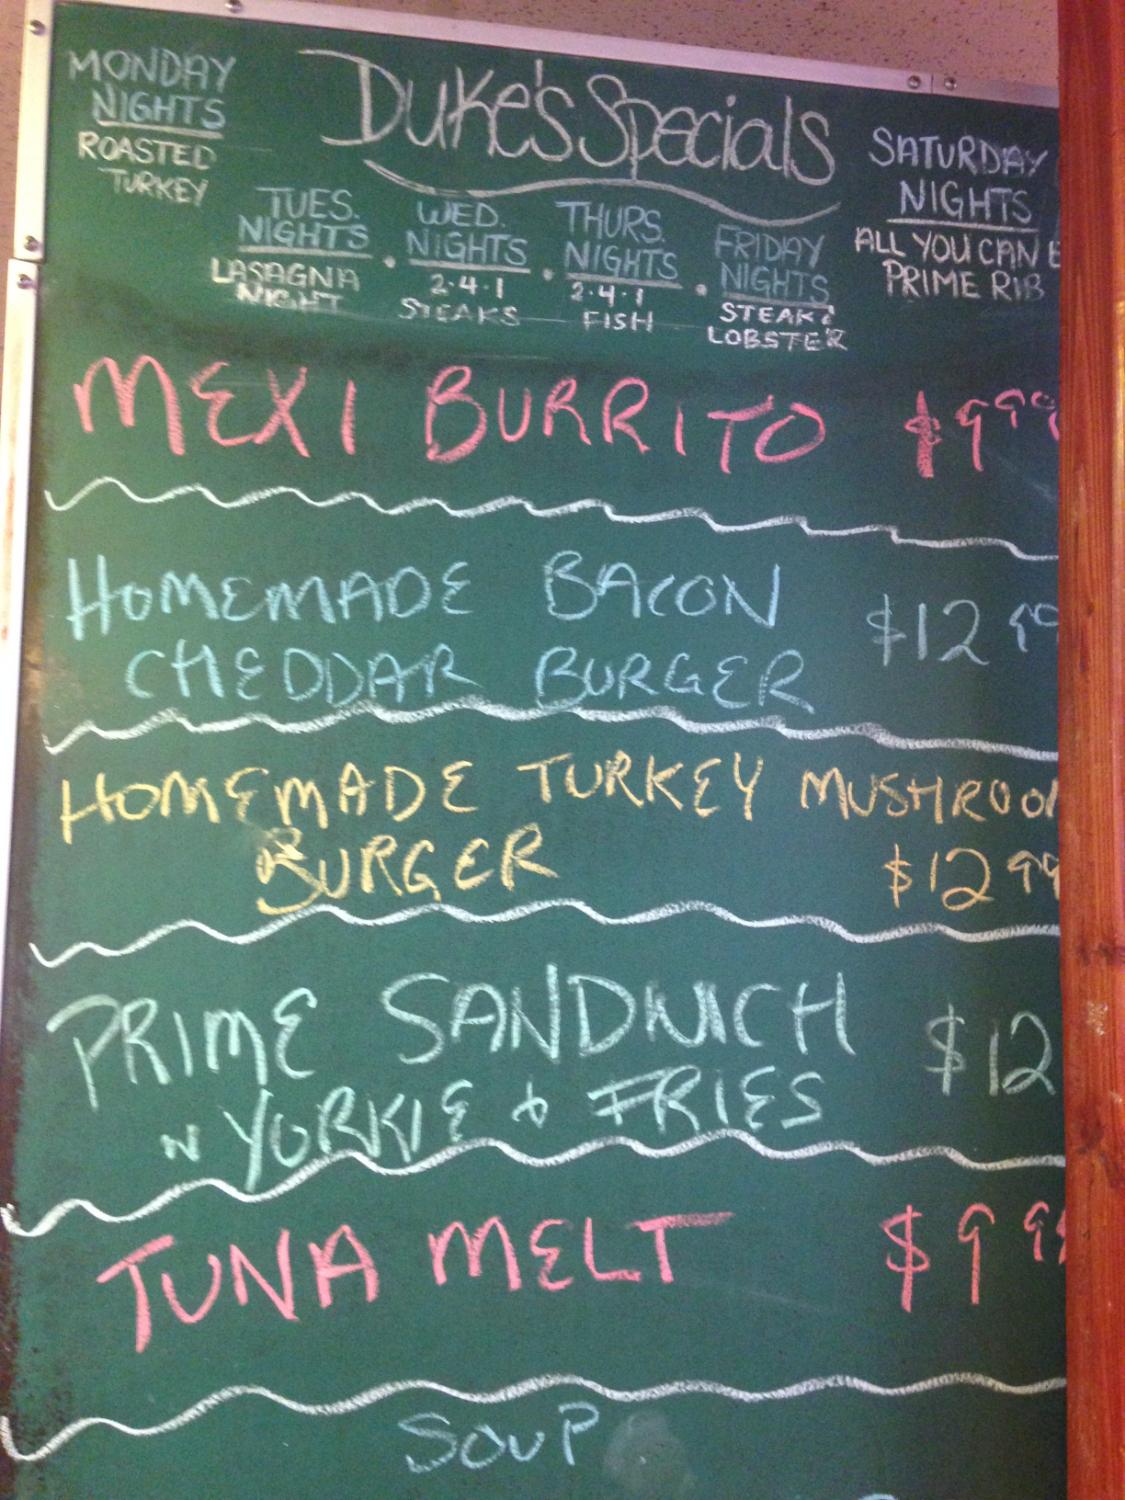 Duke's Specials
MONDAY
NIGHTS
ROASTED
TURKEY
TUES.
NIGHTS
LASAGNA
NIGHT
WED.
NIGHTS
2·4·1
STEAKS
THURS.
NIGHTS
2·4·1
FISH
FRIDAY
NIGHTS
STEAK &
LOBSTER
SATURDAY
NIGHTS
ALL YOU CAN E
PRIME RIB
MEXI BURRITO $9.99
HOMEMADE BACON
CHEDDAR BURGER $12 99
HOMEMADE TURKEY MUSHROOM
BURGER $12 99
PRIME SANDWICH $12
W YORKIE & FRIES
TUNA MELT $9 99
SOUP